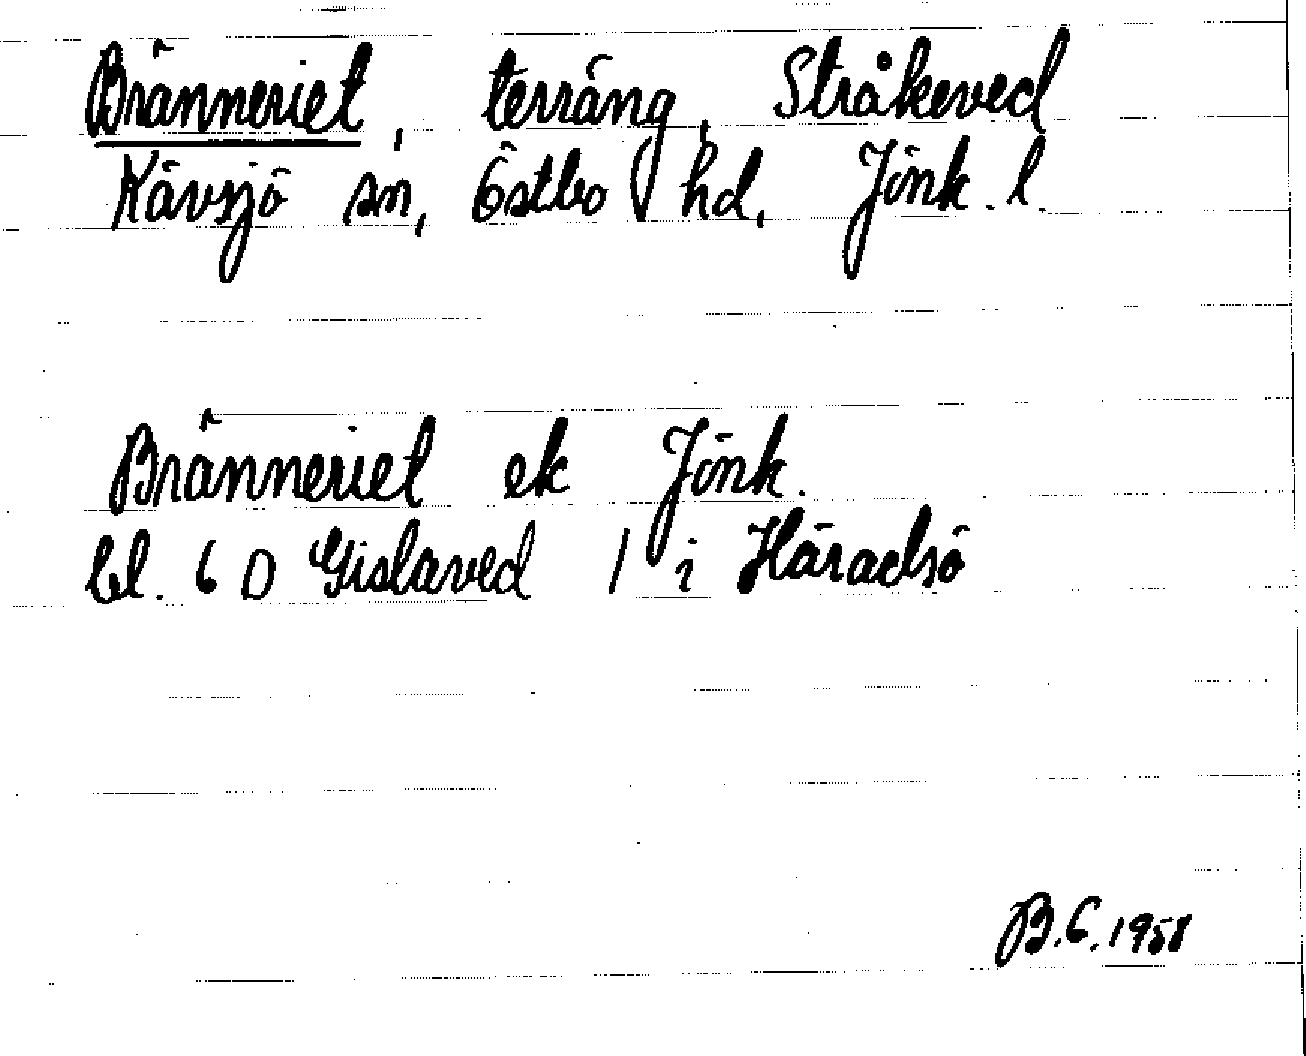 Bränneriet, terräng, Stråkeved
Kävsjö sn, Östbo hd, Jönk. l.
Bränneriet ek Jönk.
bl. 6 D Gislaved 1 i Häradsö
B.E. 1958